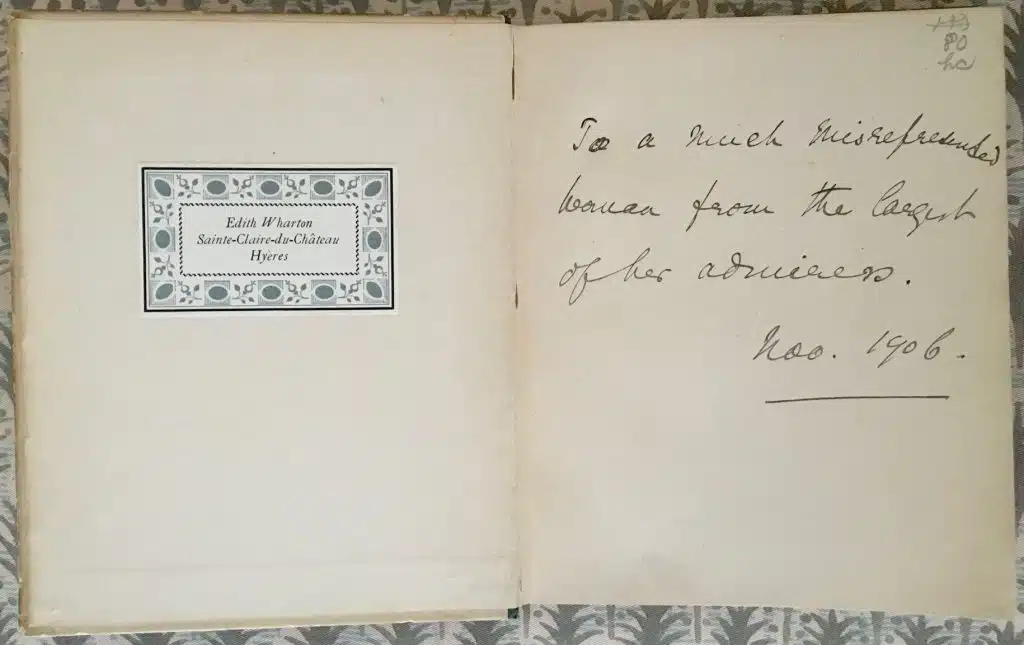 Edith Wharton
Sainte-Claire-du-Château
Hyères
80
To a much misrepresented
woman from the largest
of her admirers.
Nov. 1906.